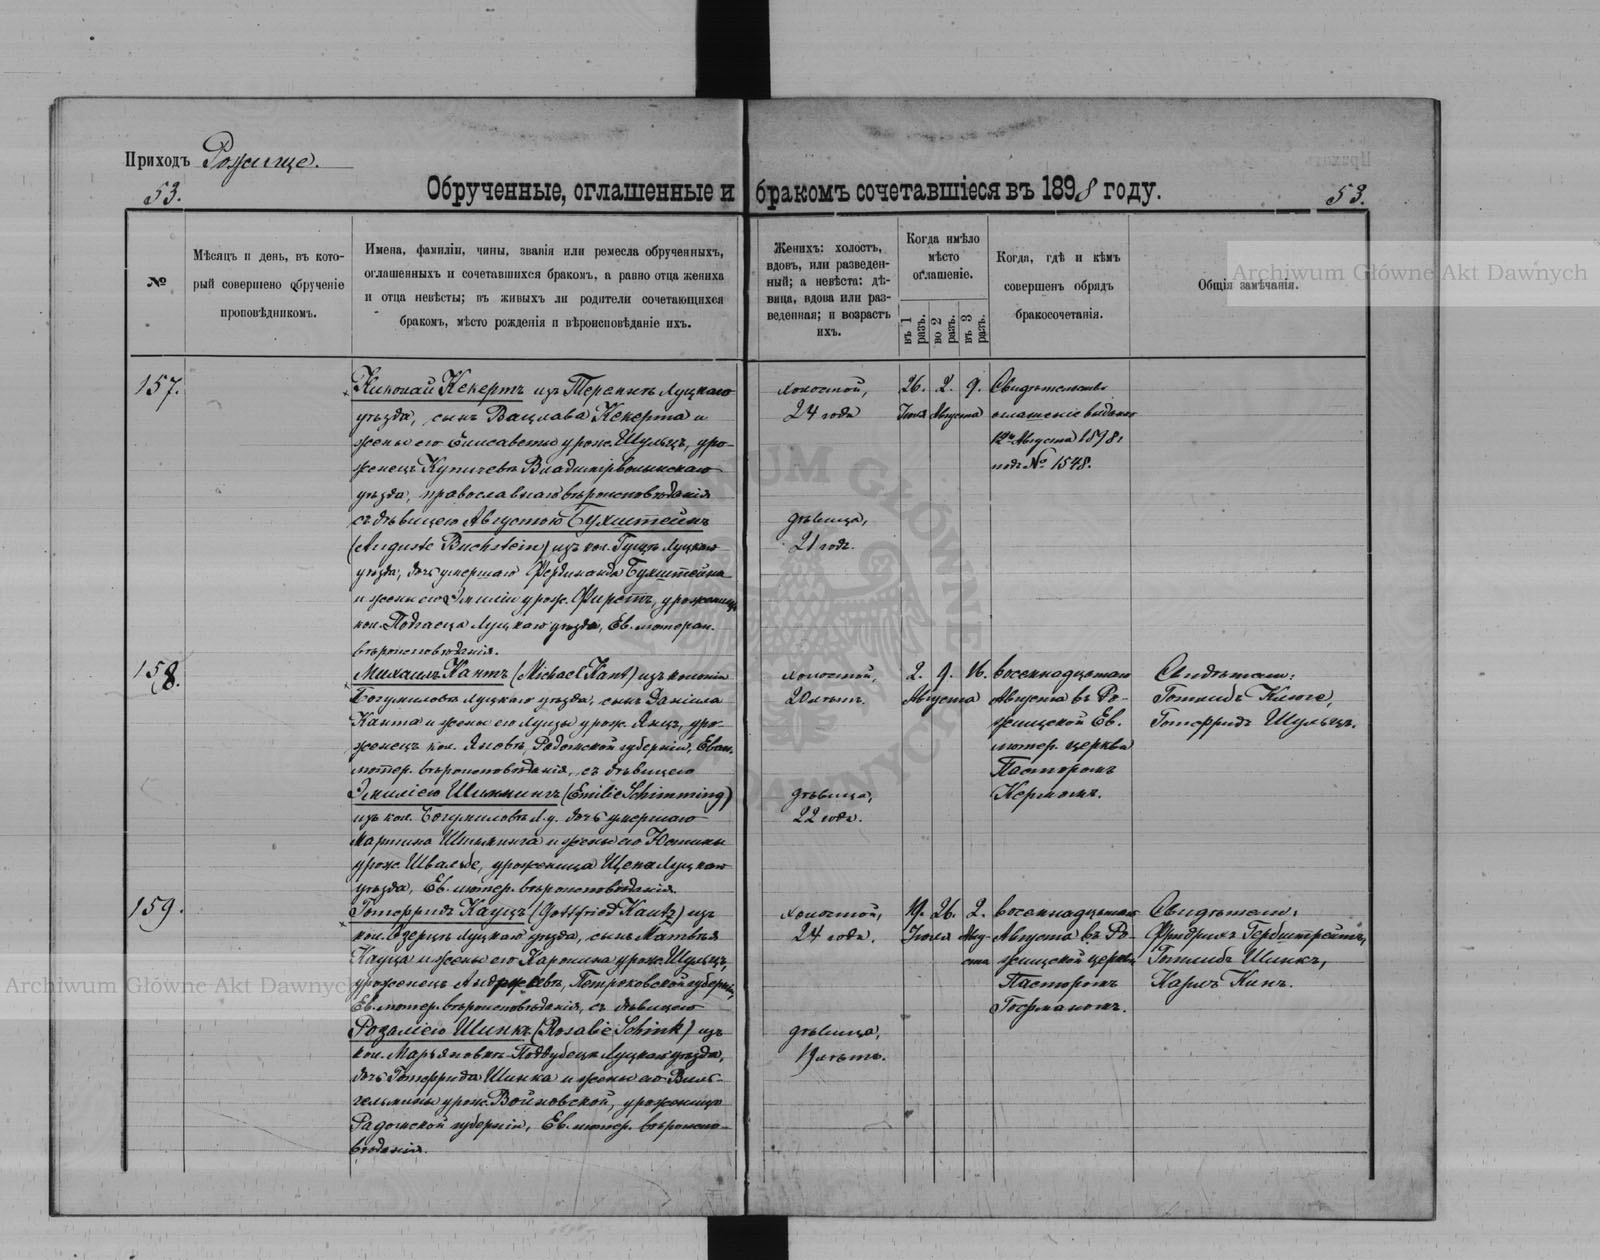 Приходъ Рожище.
53.
Обрученные, оглашенные и бракомъ сочетавшіеся въ 1898 году.
53.
№
Мѣсяцъ и день, въ кото-
рый совершено обрученіе
проповѣдникомъ.
Имена, фамиліи, чины, званія или ремесла обрученныхъ,
оглашенныхъ и сочетавшихся бракомъ, а равно отца жениха
и отца невѣсты; въ живыхъ ли родители сочетающихся
бракомъ, мѣсто рожденія и вѣроисповѣданіе ихъ.
Женихъ: холостъ,
вдовъ, или разведен-
ный; а невѣста: дѣ-
вица, вдова или раз-
веденная; и возрастъ
ихъ.
Когда имѣло
мѣсто
оглашеніе.
въ 1 разъ.
во 2 разъ.
въ 3 разъ.
Когда, гдѣ и кѣмъ
совершенъ обрядъ
бракосочетанія.
Общія замѣчанія.
157.
Николай Кекертъ изъ Теремнъ Луцкаго
уѣзда, сынъ Вацлава Кекерта и
жены его Елисаветы урож. Шульцъ, уро-
женецъ Купичевъ Владимірволынскаго
уѣзда, православнаго вѣроисповѣданія
съ дѣвицею Августою Бухштейнъ
(Auguste Buchstein) изъ кол. Гущъ Луцкаго
уѣзда, дочь умершаго Фердинанда Бухштейна
и жены его Эмиліи урож. Фирстъ, уроженица
кол. Подгаецъ Луцкаго уѣзда, Ев. лютеран.
вѣроисповѣданія.
холостой,
24 года
дѣвица,
21 годъ.
26. 2. 9.
Іюля Августа
Свидѣтельство
оглашеніе выдано
12го Августа 1898 г.
подъ № 1548.
158.
Михаилъ Кантъ (Michael Kant) изъ колоніи
Богумиловъ Луцкаго уѣзда, сынъ Даніила
Канта и жены его Луизы урож. Янцъ, уро-
женецъ кол. Яновъ, Радомской губерніи, Еван.
лютер. вѣроисповѣданія, съ дѣвицею
Эмиліею Шиммингъ (Emilie Schimming)
изъ кол. Богумиловъ Л. у. дочь умершаго
Мартина Шимминга и жены его Юстины
урож. Швальбе, уроженица Щена Луцкаго
уѣзда, Ев. лютер. вѣроисповѣданія.
холостой,
20 лѣтъ.
дѣвица,
22 года.
2. 9. 16.
Августа
восемнадцатаго
Августа въ Ро-
жищской Ев.
лютер. церкви
Пасторомъ
Кермомъ.
Свидѣтели:
Готлибъ Клюге,
Готфридъ Шульцъ.
159.
Готфридъ Кауцъ (Gottfried Kautz) изъ
кол. Озерцъ Луцкаго уѣзда, сынъ Матвѣя
Кауца и жены его Каролина урож. Шульцъ,
уроженецъ Андржевъ, Петроковской губерніи,
Ев. лютер. вѣроисповѣданія, съ дѣвицею
Розаліею Шинкъ (Rosalie Schink) изъ
кол. Марьяновки-Поддубецъ Луцкаго уѣзда,
дочь Готфрида Шинка и жены его Виль-
гельмины урож. Войновской, уроженица
Радомской губерніи, Ев. лютер. вѣроиспо-
вѣданія.
холостой,
24 года.
дѣвица,
19 лѣтъ.
19. 26. 2.
Іюля Авгу-
ста
восемнадцатаго
Августа въ Ро-
жищской церкви
Пасторомъ
Гофманомъ.
Свидѣтели:
Фридрихъ Гербштрейтъ,
Готлибъ Шинкъ,
Карлъ Кинъ.
Archiwum Główne Akt Dawnych
Archiwum Główne Akt Dawnych